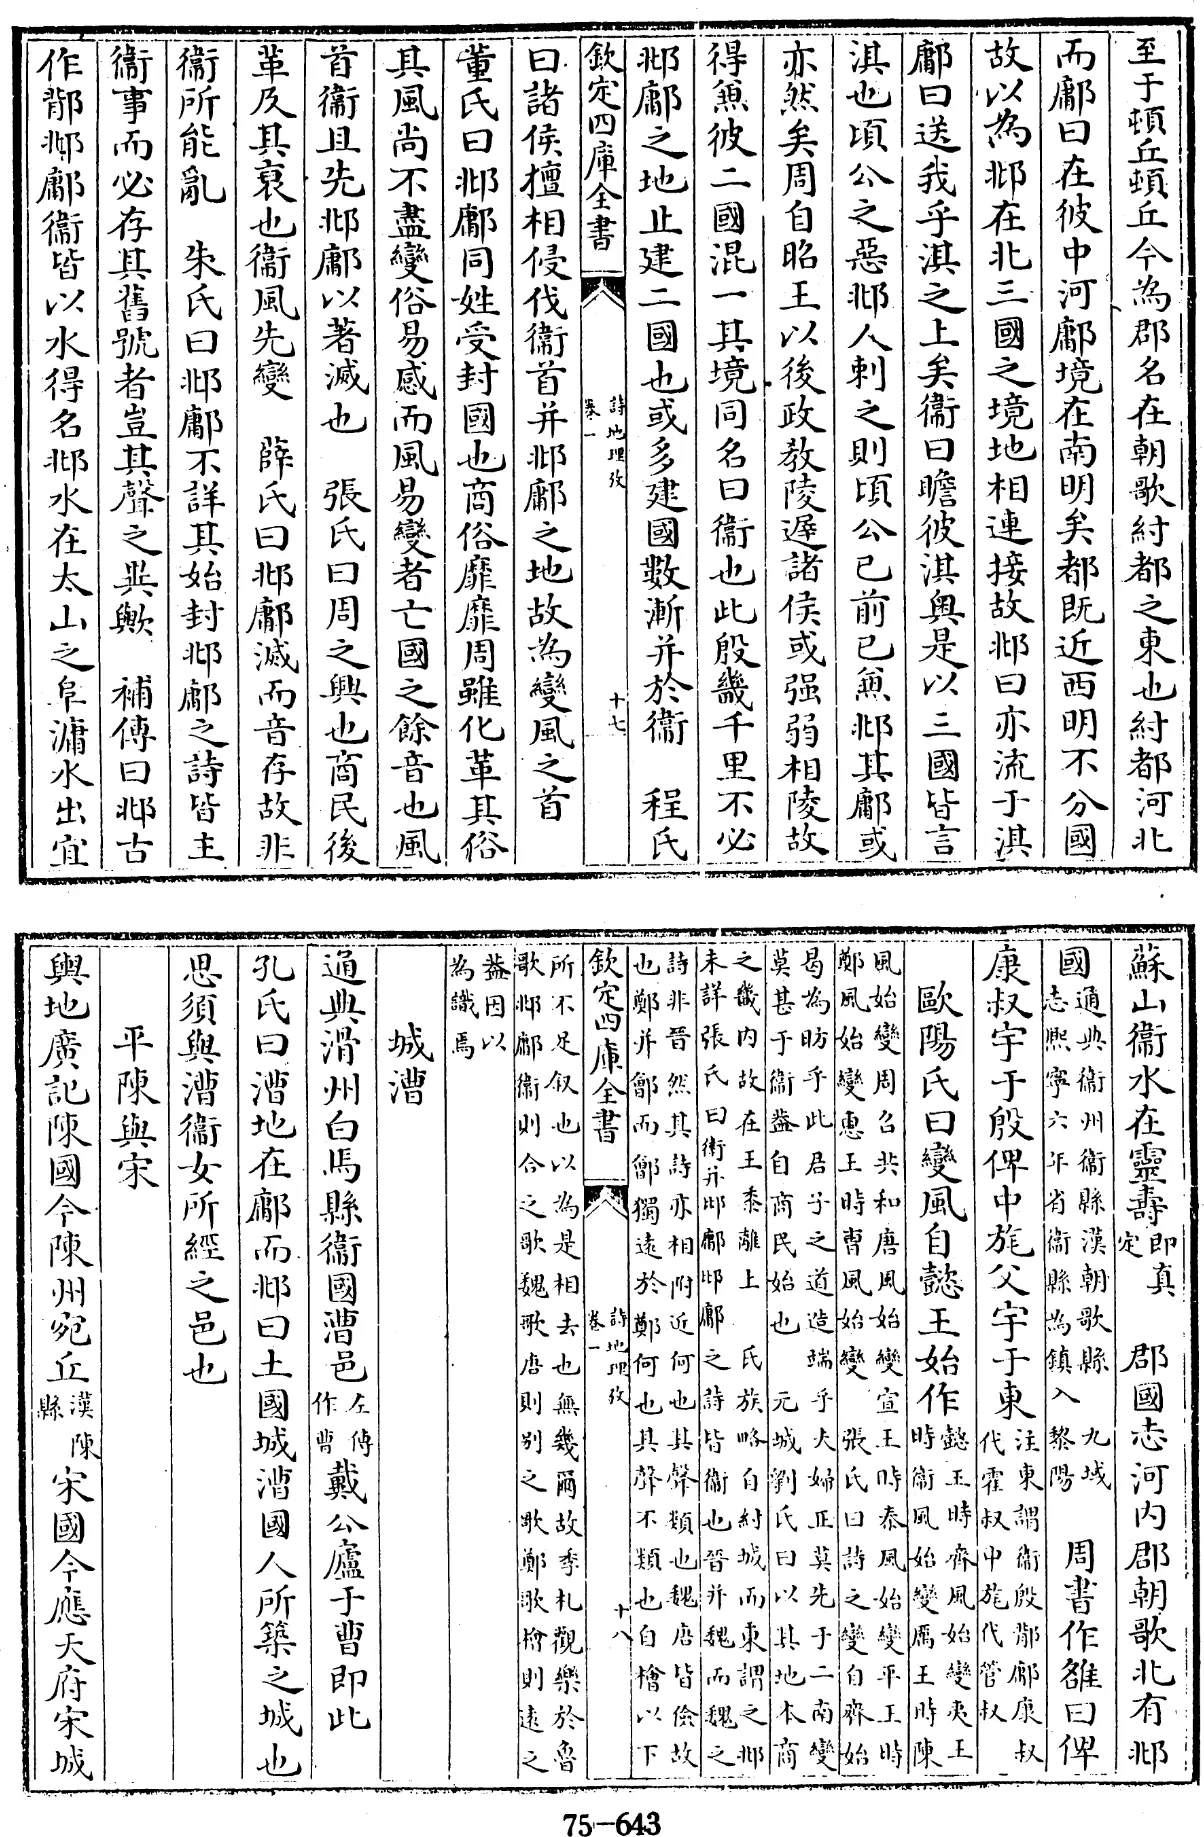 至于頓丘頓丘今為郡名在朝歌紂都之東也紂都河北
而鄘曰在彼中河鄘境在南明矣都既近西明不分國
故以為邶在北三國之境地相連接故邶曰亦流于淇
鄘曰送我乎淇之上矣衛曰瞻彼淇奥是以三國皆言
淇也頃公之惡邶人刺之則頃公已前已兼邶其鄘或
亦然矣周自昭王以後政教陵遲諸侯或强弱相陵故
得兼彼二國混一其境同名曰衛也此殷畿千里不必
邶鄘之地止建二國也或多建國數漸并於衛　程氏
欽定四庫全書
詩地理攷
卷一
十七
曰諸侯擅相侵伐衛首并邶鄘之地故為變風之首
董氏曰邶鄘同姓受封國也商俗靡靡周雖化革其俗
其風尚不盡變俗易感而風易變者亡國之餘音也風
首衛且先邶鄘以著滅也　張氏曰周之興也商民後
革及其衰也衛風先變　薛氏曰邶鄘滅而音存故非
衛所能亂　朱氏曰邶鄘不詳其始封邶鄘之詩皆主
衛事而必存其舊號者豈其聲之異歟　補傳曰邶古
作鄁邶鄘衛皆以水得名邶水在太山之阜滽水出宜
蘇山衛水在靈壽
即真
定
郡國志河内郡朝歌北有邶
國
通典衛州衛縣漢朝歌縣　九域
志熙寧六年省衛縣為鎮入黎陽
周書作雒曰俾
康叔宇于殷俾中旄父宇于東
注東謂衛殷鄁鄘康叔
代霍叔中旄代管叔
歐陽氏曰變風自懿王始作
懿王時齊風始變夷王
時衛風始變厲王時陳
風始變周召共和唐風始變宣王時秦風始變平王時
鄭風始變惠王時曹風始變　張氏曰詩之變自齊始
曷為昉乎此君子之道造端乎夫婦正莫先于二南變
莫甚于衛葢自商民始也　元城劉氏曰以其地本商
之畿内故在王黍離上　氏族略自紂城而東謂之邶
未詳張氏曰衛并邶鄘邶鄘之詩皆衛也晉并魏而魏之
詩非晉然其詩亦相附近何也其聲類也魏唐皆儉故
也鄭并鄶而鄶獨遠於鄭何也其聲不類也自檜以下
欽定四庫全書
詩地理攷
卷一
十八
所不足叙也以為是相去也無幾爾故季札觀樂於魯
歌邶鄘衛則合之歌魏歌唐則别之歌鄭歌檜則遠之
葢因以
為識焉
城漕
通典滑州白馬縣衛國漕邑
左傳
作曹
戴公廬于曹即此
孔氏曰漕地在鄘而邶曰土國城漕國人所築之城也
思須與漕衛女所經之邑也
平陳與宋
輿地廣記陳國今陳州宛丘
漢陳
縣
宋國今應天府宋城
75-643